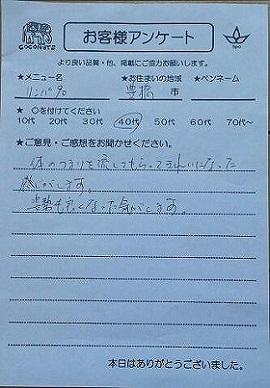 COCONUTS
お客様アンケート
spa
より良い品質・他、掲載にご協力お願いします。
★メニュー名 ★お住まいの地域 ★ペンネーム
リンパ90 豊橋 市
★ ○を付けてください
10代 20代 30代 40代 50代 60代 70代～
★ご意見・ご感想をお聞かせください。
体のつまりを流してもらってきれいになった
感じがします。
姿勢も良くなった気がします。
本日はありがとうございました。